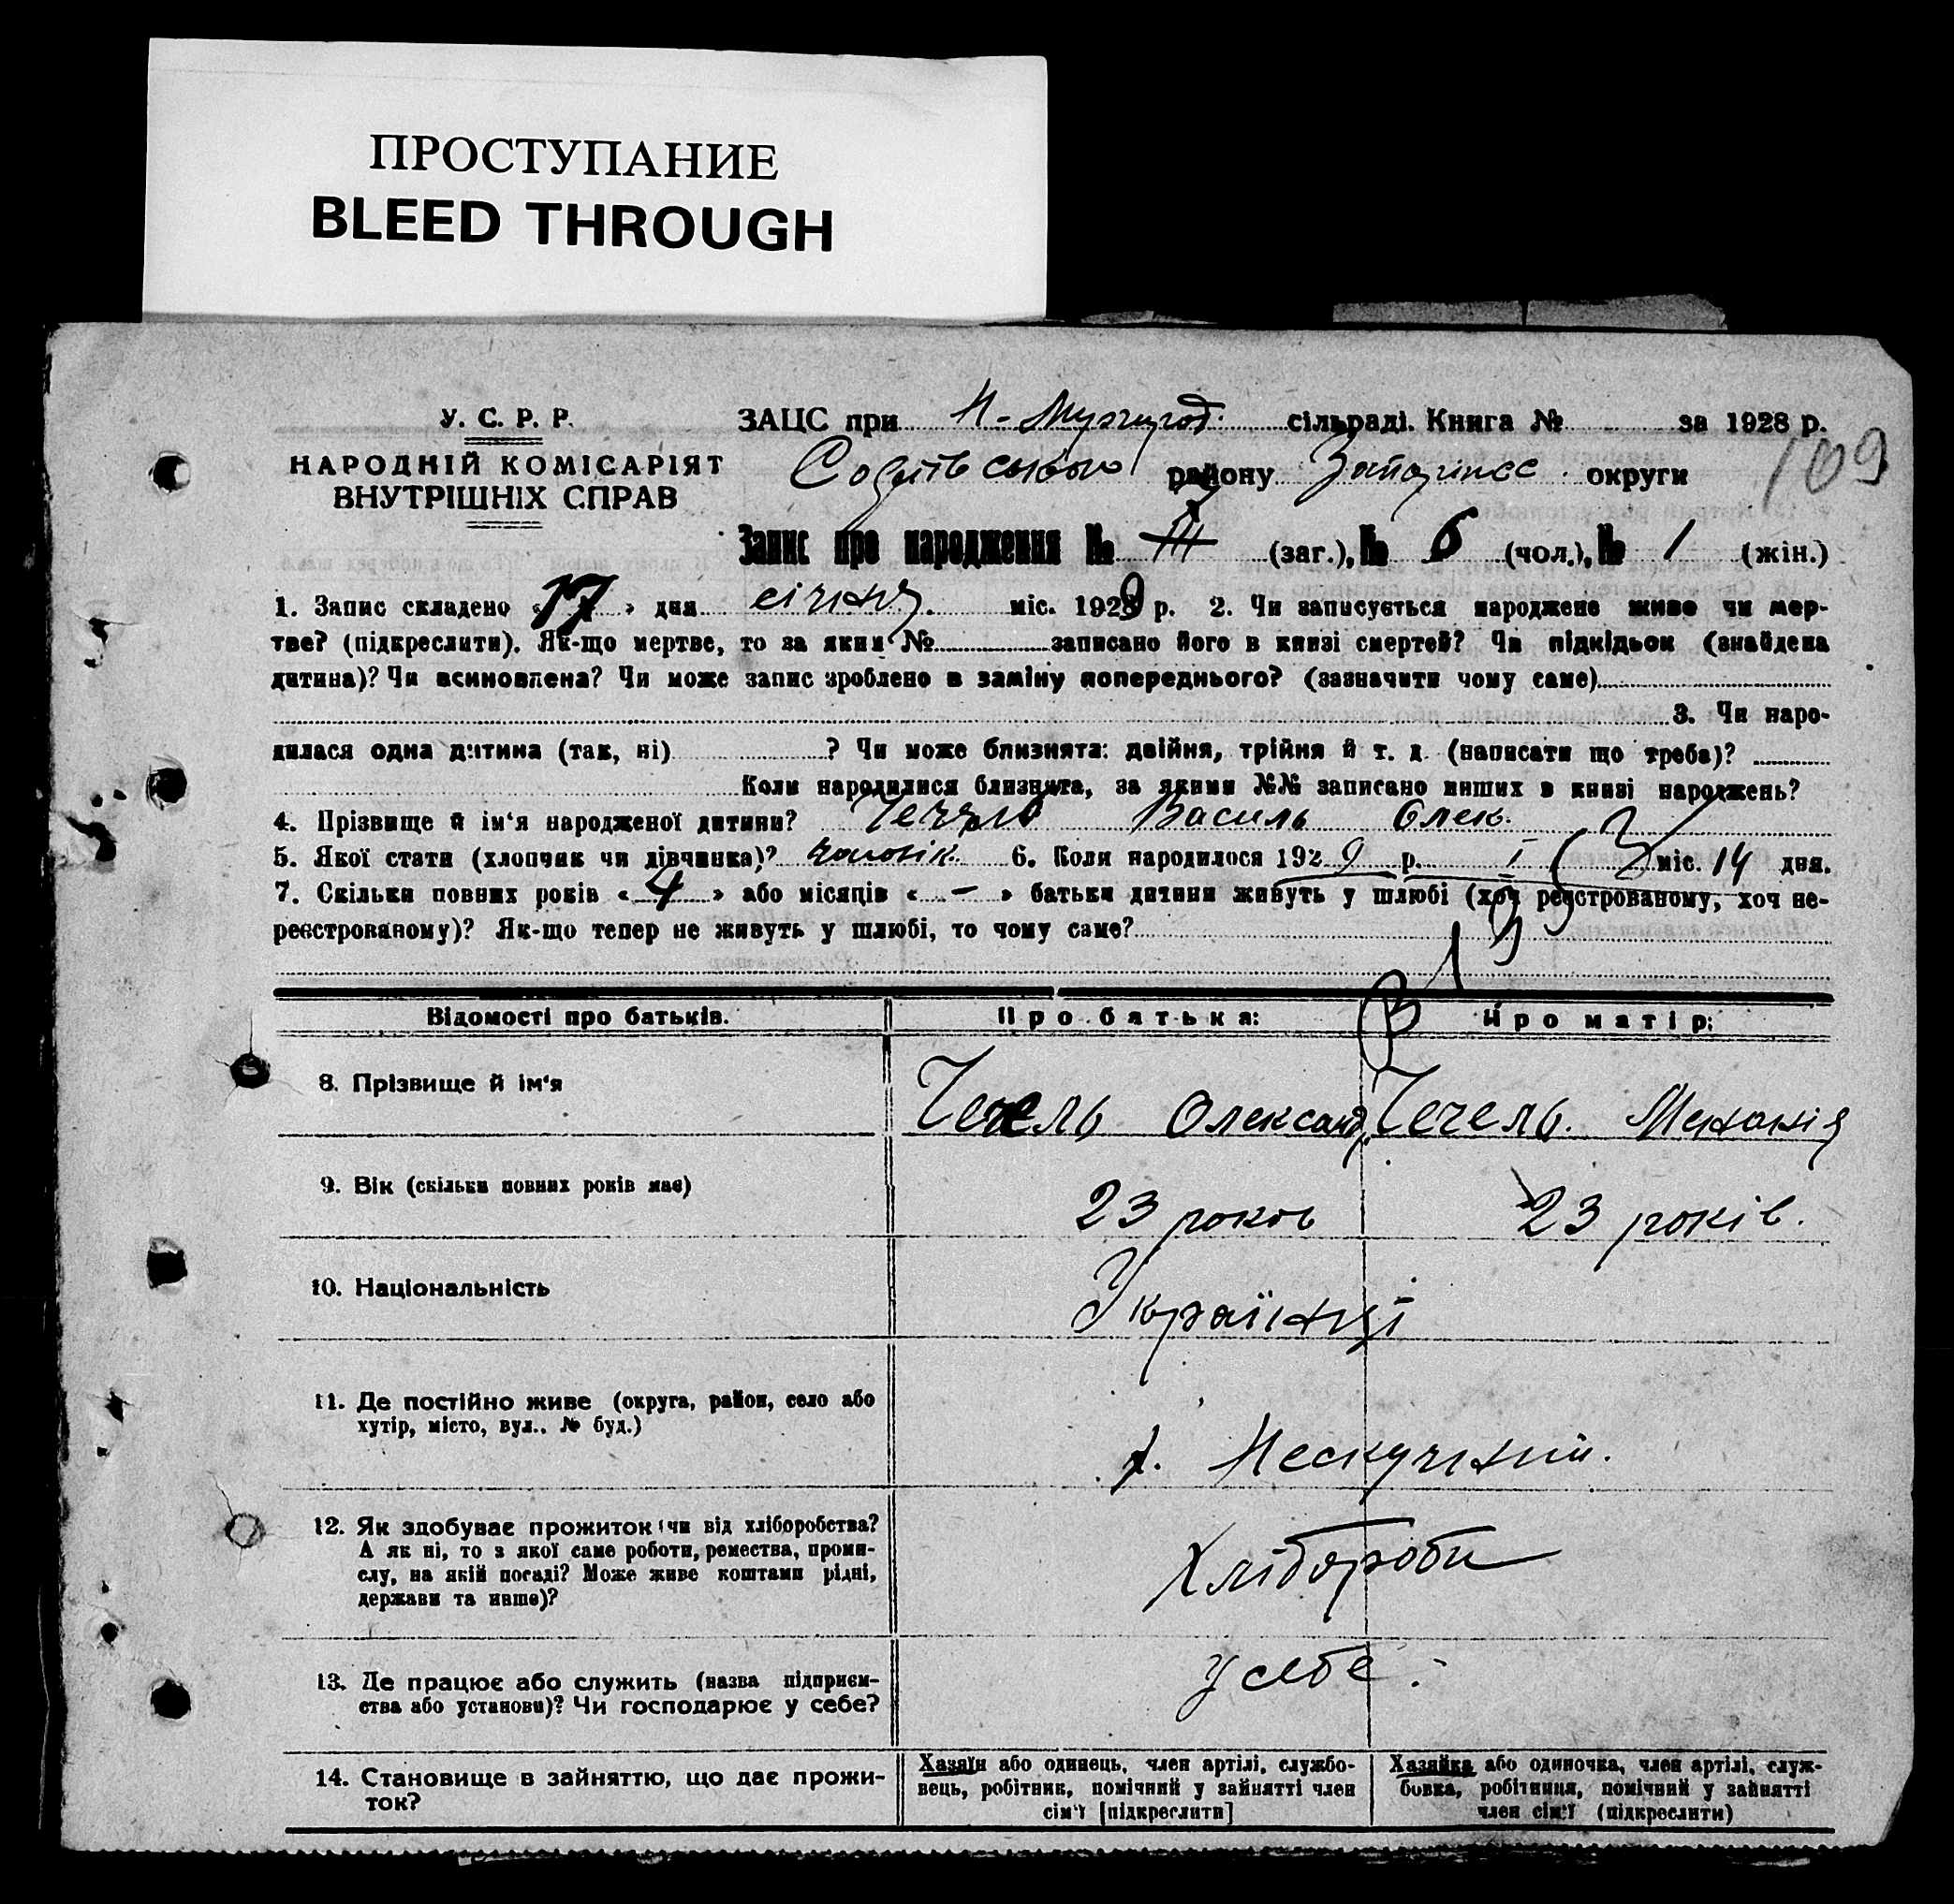 ПРОСТУПАНИЕ
BLEED THROUGH
У. С. Р. Р.
НАРОДНІЙ КОМІСАРІЯТ
ВНУТРІШНІХ СПРАВ
ЗАЦС при сільраді. Книга № за 1928 р.
109
району округи
Запис про народження № (заг.), № 6 (чол.), № 1 (жін.)
1. Запис складено « 17 » дня січня. міс. 1929 р. 2. Чи записується народжене живе чи мер-
тве? (підкреслити). Як-що мертве, то за яким № записано його в книзі смертей? Чи підкідьок (знайдена
дитина)? Чи всиновлена? Чи може запис зроблено в заміну попереднього? (зазначити чому саме)
3. Чи наро-
дилася одна дитина (так, ні) ? Чи може близнята: двійня, трійня й т. д. (написати що треба)?
Коли народилися близнята, за якими №№ записано инших в книзі народжень?
4. Прізвище й ім'я народженої дитини? Чечель Василь Олек.
5. Якої стати (хлопчик чи дівчинка)? чоловік. 6. Коли народилося 1929 р. I міс. 14 дня.
7. Скільки повних років « 4 » або місяців « – » батьки дитини живуть у шлюбі (хоч реєстрованому, хоч не-
реєстрованому)? Як-що тепер не живуть у шлюбі, то чому саме?
Відомості про батьків. Про батька: Про матір:
8. Прізвище й ім'я Чечель Олександ. Чечель. Меланія
9. Вік (скільки повних років має) 23 років 23 років.
10. Національність Українці
11. Де постійно живе (округа, район, село або
хутір, місто, вул.. № буд.) х. Нескучний.
12. Як здобуває прожиток (чи від хліборобства?
А як ні, то з якої саме роботи, ремества, проми-
слу, на якій посаді? Може живе коштами рідні,
держави та инше)? Хлібороби
13. Де працює або служить (назва підприєм-
ства або установи)? Чи господарює у себе? у себе.
14. Становище в зайняттю, що дає прожи-
ток?
Хазяїн або одинець, член артілі, службо-
вець, робітник, помічний у зайнятті член
сім'ї [підкреслити]
Хазяйка або одиночка, член артілі, служ-
бовка, робітниця, помічний у зайнятті
член сім'ї (підкреслити)